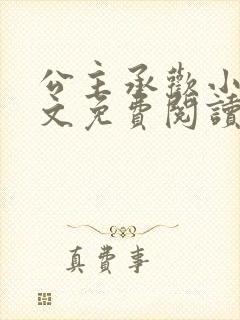 公主承歡小
文免費閱讀
真費事